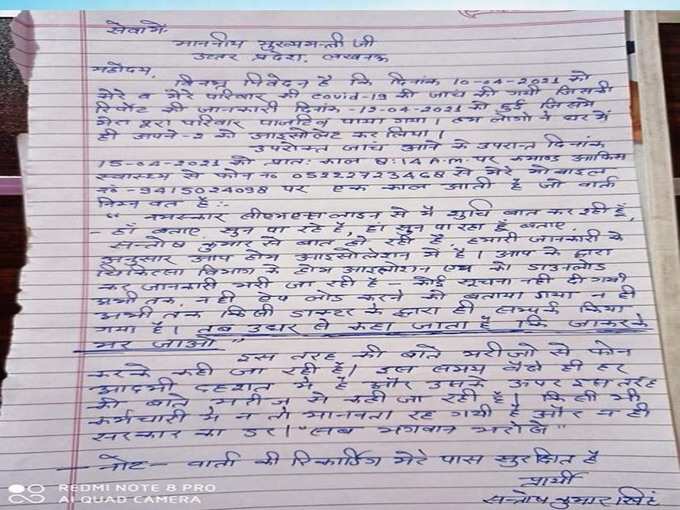 सेवा में,
माननीय मुख्यमन्त्री जी
उत्तर प्रदेश, लखनऊ
महोदय,
विनम्र निवेदन है कि दिनांक 10-04-2021 को
मेरे व मेरे परिवार की covid-19 की जांच की गयी जिसकी
रिपोर्ट की जानकारी दिनांक -12-04-2021 को हुई जिसमें
मेरा पूरा परिवार पाजटिव पाया गया। हम लोगों ने घर में
ही अपने-2 को आइसोलेट कर लिया।
उपरोक्त जांच आने के उपरान्त दिनांक
15-04-2021 को प्रातः काल 8:14 A.m. पर कमाण्ड आफिस
स्वास्थ्य से फोन नं० 05222723468 से मेरे मोबाइल
नं०-9415024098 पर एक काल आती है जो वार्ता
निम्न वत है:-
" नमस्कार सीएमएस लाइन से मैं शुचि बात कर रही हूँ,
- हाँ बताए, सुन पा रहे है, हाँ सुन पा रहा हूँ बताए,
सन्तोष कुमार से बात हो रही है हमारी जानकारी के
अनुसार आप होम आइसोलेशन में है। आप के द्वारा
चिकित्सा विभाग के होम आइसोलेशन एप को डाउनलोड
कर जानकारी भरी जा रही है - कोई सूचना नही दी गयी
अभी तक, न ही ऐप लोड करने को बताया गया न ही
अभी तक किसी डाक्टर के द्वारा ही सम्पर्क किया
गया है। तब उधर से कहा जाता है कि जाकरके
मर जाओ "
इस तरह की बाते मरीजो से फोन
करके कही जा रही है। इस समय वैसे ही हर
आदमी दहशत में है और उसके ऊपर इस तरह
की बाते मरीज से कही जा रही है। किसी भी
कर्मचारी में न तो मानवता रह गयी है और न ही
सरकार का डर। "सब भगवान भरोसे"
- नोट- वार्ता की रिकार्डिंग मेरे पास सुरक्षित है
प्रार्थी
सन्तोष कुमार सिंह
REDMI NOTE 8 PRO
AI QUAD CAMERA